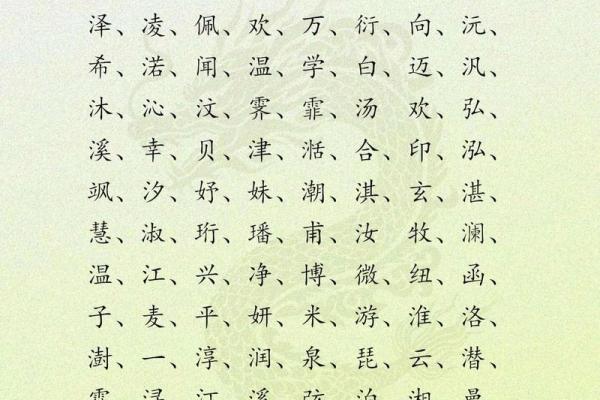 泽、凌、佩、欢、万、衍、向、沅、
希、渃、闻、温、学、白、迈、汎、
沐、沁、汶、霁、霏、汤 欢、弘、
溪、幸、贝、津、湉、合、印、泓、
飒、汐、妤、妹、潮、淇、玄、湛、
慧、淑、珩、璠、甫、汝 牧、澜、
温、江、兴、净、博、微、纽、函、
子、麦、平、妍、米、游、淮、洛、
澍、一、淳、润、泉、琵、云、潜、